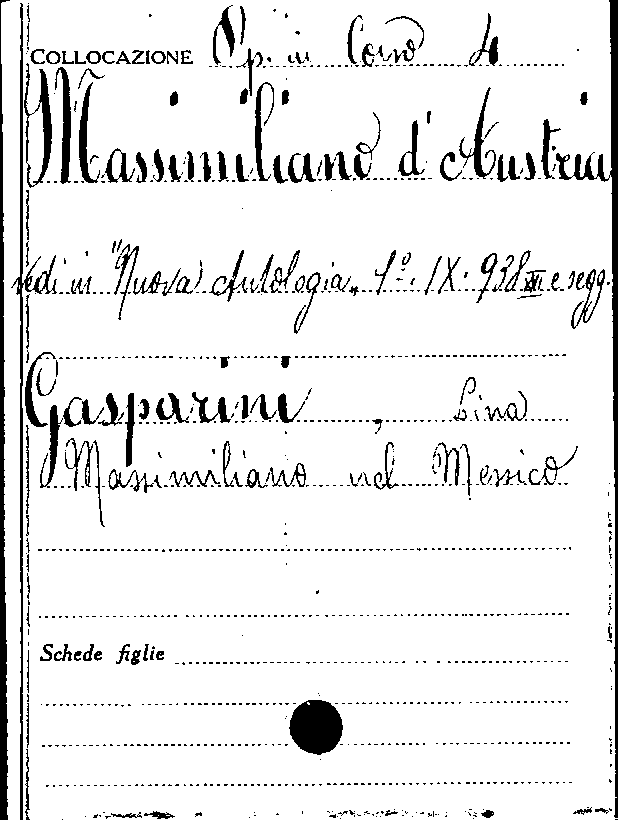 COLLOCAZIONE Pp. in Corso 4
Massimiliano d'Austria
vedi in "Nuova Antologia" 1º. IX. 938 XVI e segg.
Gasparini, Lina
Massimiliano nel Messico
Schede figlie